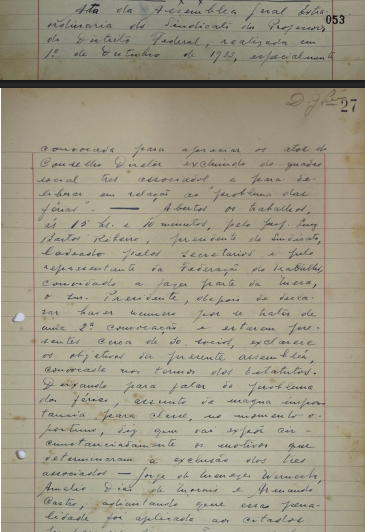 Ata da Assembléa geral Extra-
053
ordinaria do Sindicato dos Professores
do Districto Federal, realizada em
1º de Outubro de 1933, especialmente
27
convocada para apreciar os atos do
Conselho Diretor excluindo do quadro
social tres associados e para de-
liberar em relação ao "problema das
férias". — Abertos os trabalhos,
ás 15 hs. e 10 minutos, pelo prof.
Bastos Ribeiro, presidente do Sindicato,
ladeado pelos secretarios e pelo
representante da Federação do Trabalho,
convidado a fazer parte da mesa,
o snr. Presidente, depois de decla-
rar haver numero por se tratar de
uma 2ª convocação e estarem pre-
sentes cerca de socios, esclarece
os objetivos da presente assembléa,
convocada nos termos dos Estatutos.
Deixando para falar do problema
das férias, assunto de magna impor-
tancia para classe, no momento o-
portuno, diz que vai expôr cir-
cunstanciadamente os motivos que
determinaram a exclusão dos tres
associados — Jorge de Menezes Werneck,
Amelio Dias de Moraes e Armando
Castro, adiantando que essa pena-
lidade foi aplicada aos citados